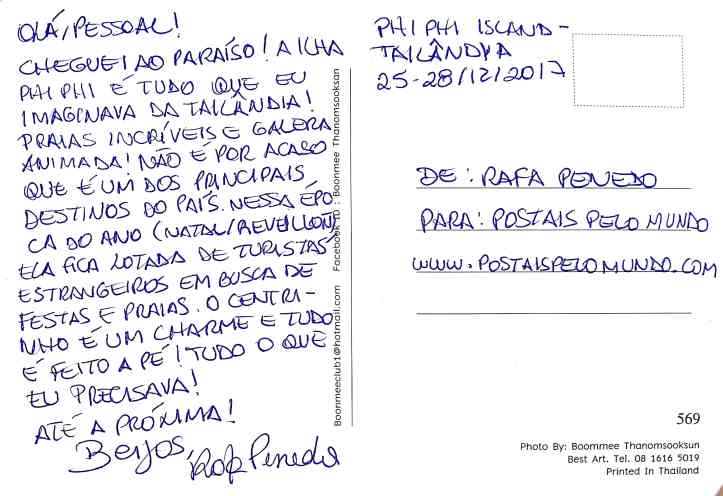 OLÁ, PESSOAL!
CHEGUEI AO PARAÍSO! A ILHA
PHI PHI É TUDO QUE EU
IMAGINAVA DA TAILÂNDIA!
PRAIAS INCRÍVEIS E GALERA
ANIMADA! NÃO É POR ACASO
QUE É UM DOS PRINCIPAIS
DESTINOS DO PAÍS. NESSA ÉPO-
CA DO ANO (NATAL/REVEILLON)
ELA FICA LOTADA DE TURISTAS
ESTRANGEIROS EM BUSCA DE
FESTAS E PRAIAS. O CENTRI-
NHO É UM CHARME E TUDO
É FEITO A PÉ! TUDO O QUE
EU PRECISAVA!
ATÉ A PRÓXIMA!
Beijos,
Rafa Penedo
Boonmeeclub1@hotmail.com Facebook To : Boonmee Thanomsooksan
PHI PHI ISLAND -
TAILÂNDIA
25-28/12/2017
DE: RAFA PENEDO
PARA: POSTAIS PELO MUNDO
WWW.POSTAISPELOMUNDO.COM
569
Photo By: Boommee Thanomsooksun
Best Art. Tel. 08 1616 5019
Printed In Thailand